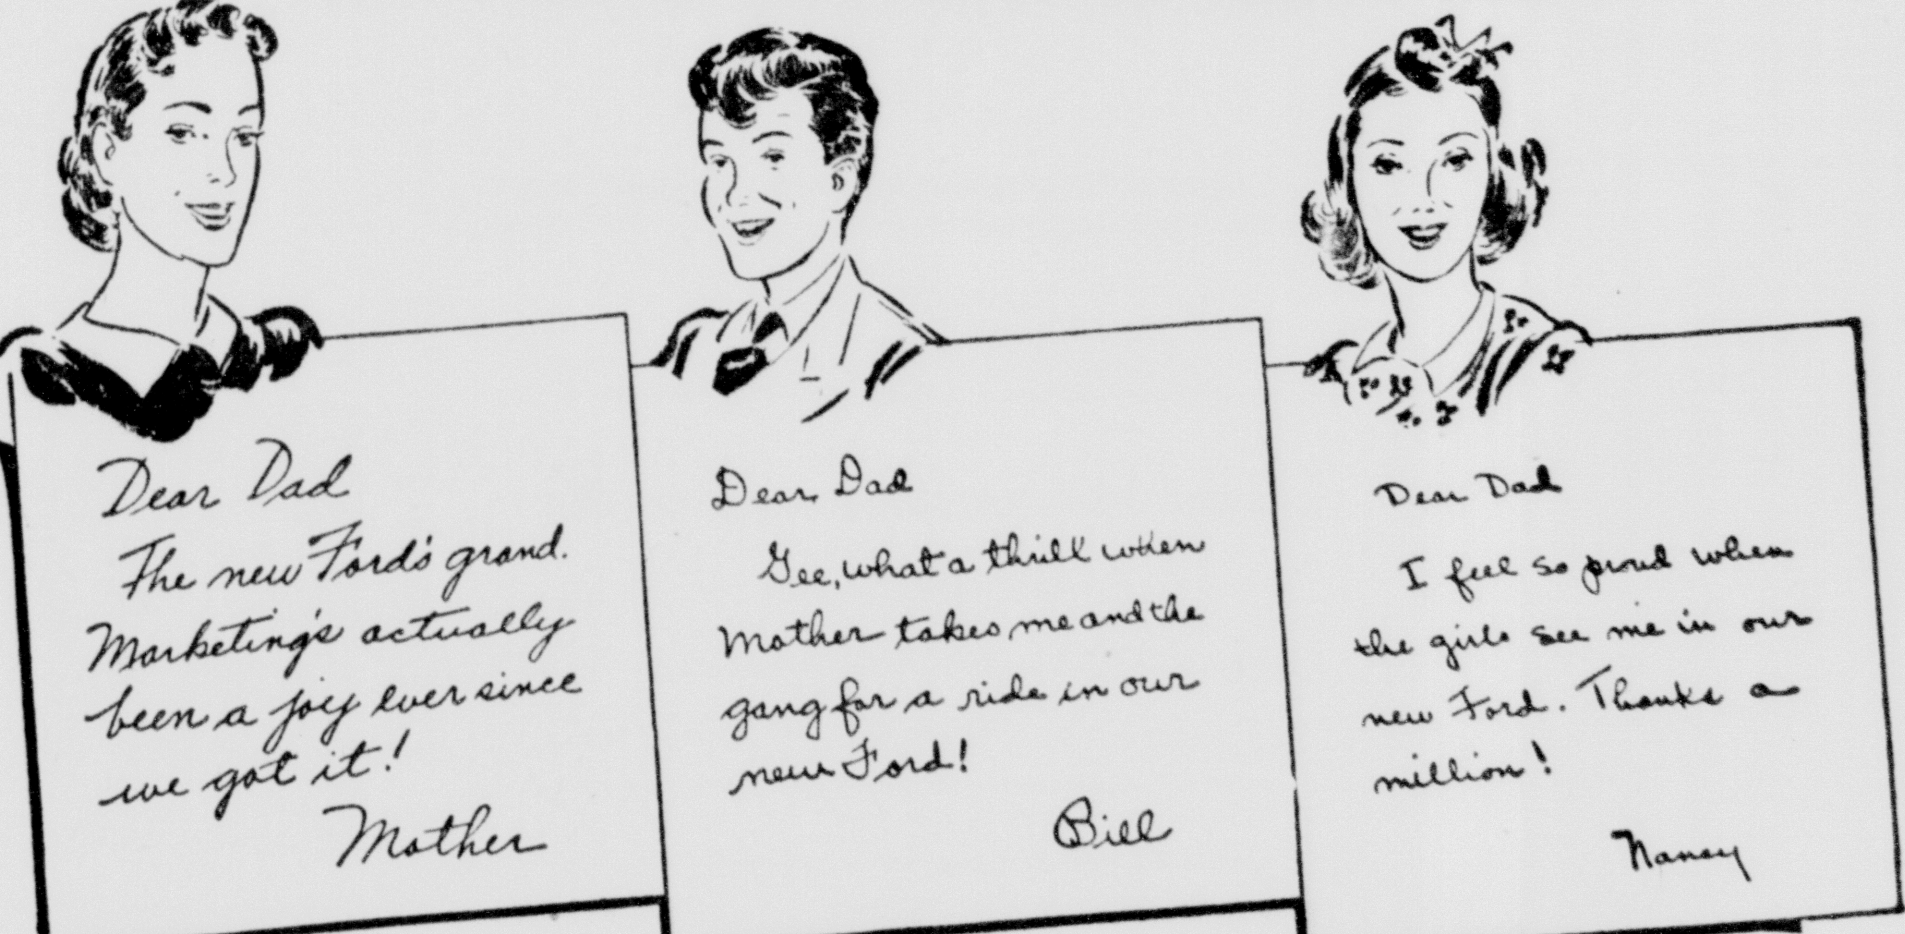 Dear Dad
The new Ford's grand.
Marketing's actually
been a joy ever since
we got it!
Mother
Dear Dad
Gee, what a thrill when
Mother takes me and the
gang for a ride in our
new Ford!
Bill
Dear Dad
I feel so proud when
the girls see me in our
new Ford. Thanks a
million!
Nancy